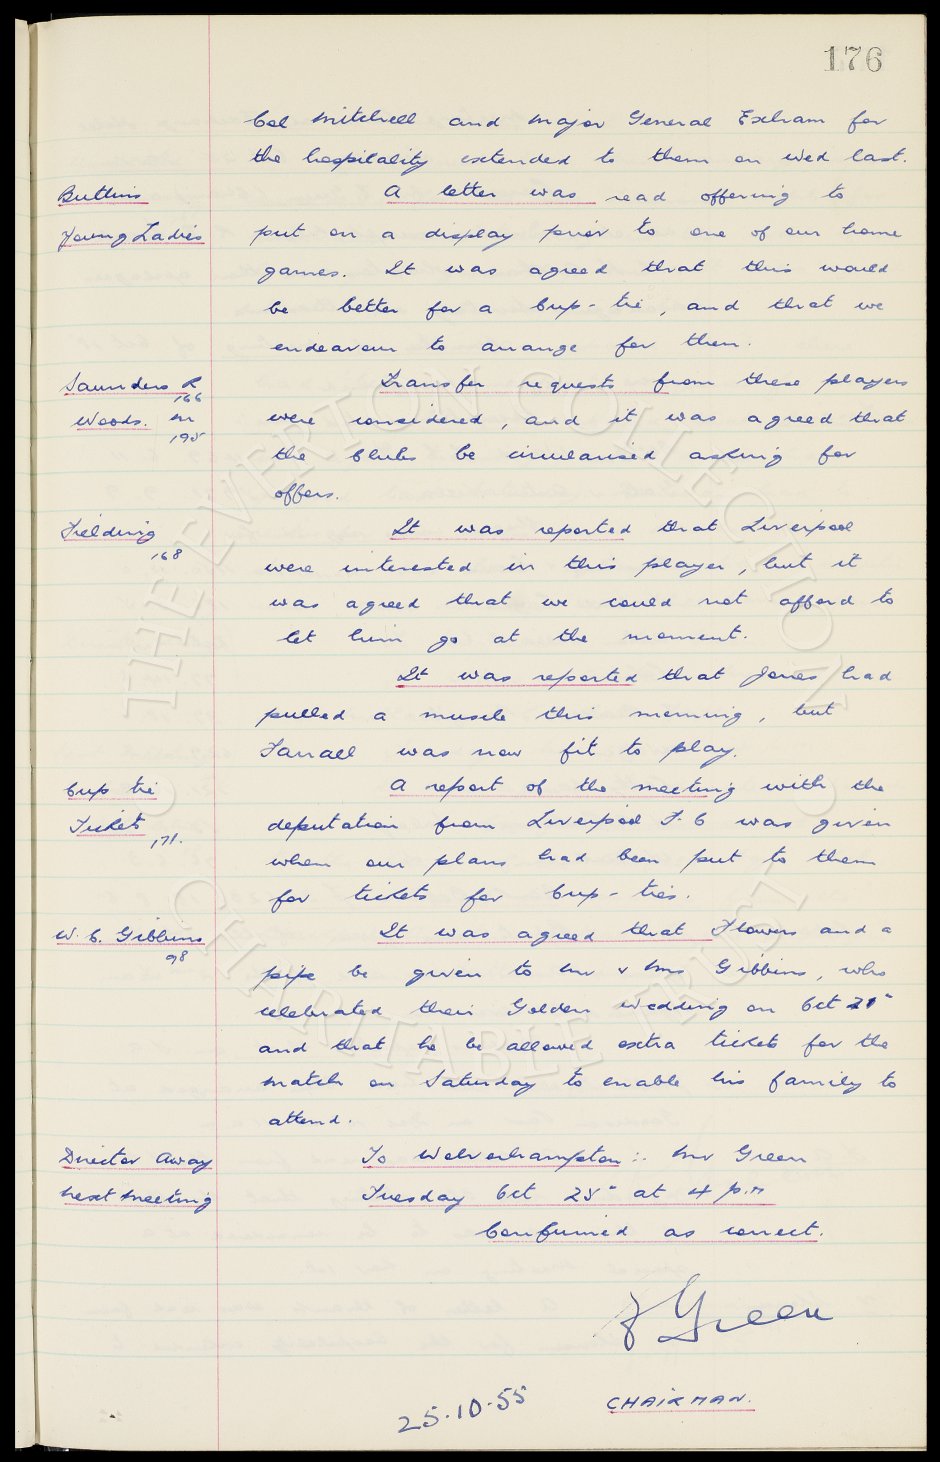 176
Col Mitchell and Major General Exham for
the hospitality extended to them on Wed last.
Butlins A letter was read offering to
Young Ladies put on a display prior to one of our home
games. It was agreed that this would
be better for a Cup-tie, and that we
endeavour to arrange for them.
Saunders R 166 Transfer requests from these players
Woods. M 195 were considered, and it was agreed that
the Clubs be circularised asking for
offers.
Fielding 168 It was reported that Liverpool
were interested in this player, but it
was agreed that we could not afford to
let him go at the moment.
It was reported that Jones had
pulled a muscle this morning, but
Farrall was now fit to play.
Cup tie A report of the meeting with the
Tickets 171. deputation from Liverpool F.C was given
when our plans had been put to them
for tickets for Cup-ties.
W. C. Gibbins 98 It was agreed that Flowers and a
pipe be given to Mr & Mrs Gibbins, who
celebrated their Golden Wedding on Oct 21"
and that he be allowed extra tickets for the
match on Saturday to enable his family to
attend.
Director Away To Wolverhampton :- Mr Green
Next Meeting Tuesday Oct 25" at 4 p.m
Confirmed as correct.
F Green
25.10.55 CHAIRMAN.
THE EVERTON COLLECTION
CHARITABLE TRUST